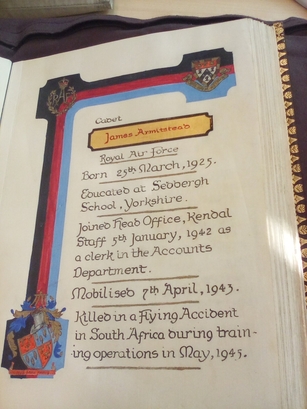 Cadet
James Armitstead
Royal Air Force
Born 25th March, 1925.
Educated at Sedbergh
School, Yorkshire.
Joined Head Office, Kendal
Staff 5th January, 1942 as
a clerk in the Accounts
Department.
Mobilised 7th April, 1943.
Killed in a Flying Accident
in South Africa during train-
ing operations in May, 1945.